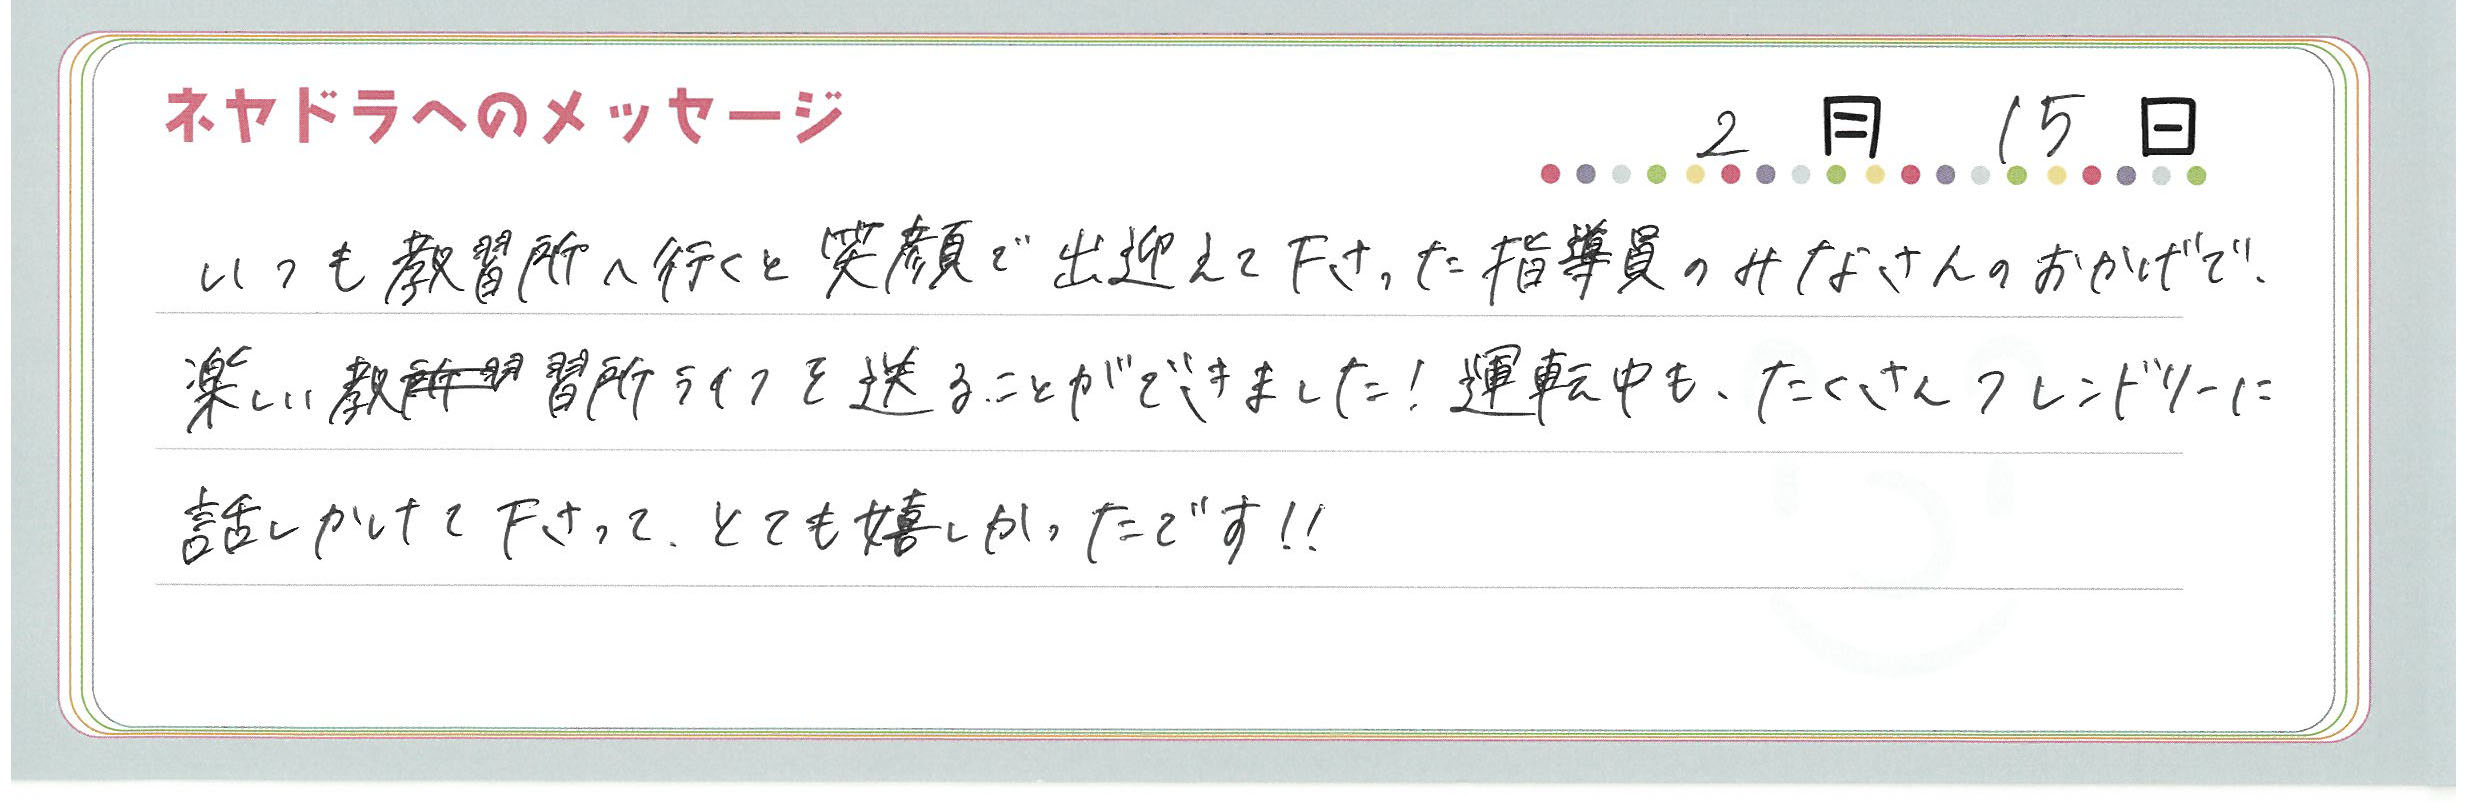 ネヤドラへのメッセージ
2月15日
いつも教習所へ行くと笑顔で出迎えて下さった指導員のみなさんのおかげで、
楽しい教習所ライフを送ることができました!運転中も、たくさんフレンドリーに
話しかけて下さって、とても嬉しかったです!!